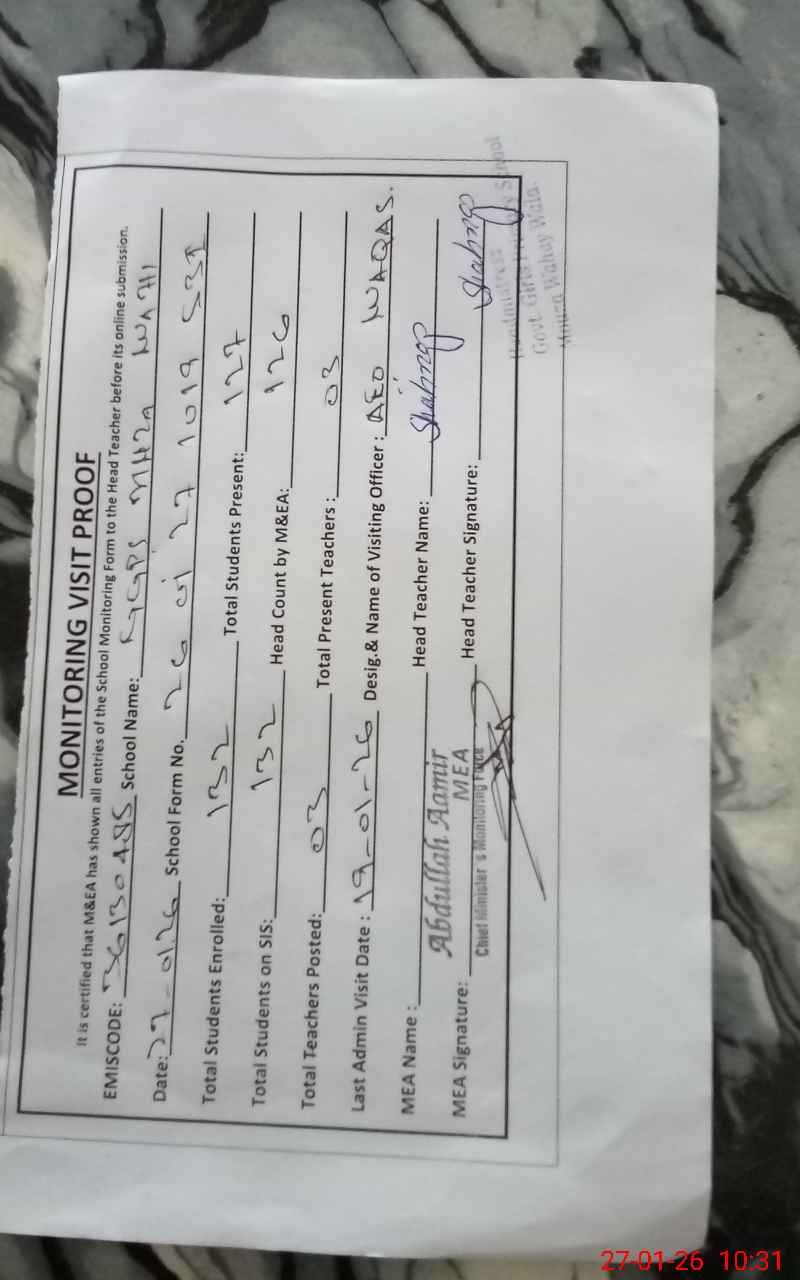 MONITORING VISIT PROOF
It is certified that M&EA has shown all entries of the School Monitoring Form to the Head Teacher before its online submission.
EMISCODE: 36130485 School Name: GGPS WAHI
Date: 27-01-26 School Form No. 26 01 27 1019 531
Total Students Enrolled: 132 Total Students Present: 127
Total Students on SIS: 132 Head Count by M&EA: 126
Total Teachers Posted: 03 Total Present Teachers: 03
Last Admin Visit Date : 19-01-26 Desig.& Name of Visiting Officer : AEO WAQAS.
MEA Name : Abdullah Aamir Head Teacher Name: Shahnaz
MEA
MEA Signature: Head Teacher Signature: Shahnaz
Chief Minister's Monitoring Force
Headmistress
Govt. Girls Primary School
Mouza Wahay Wala.
27-01-26 10:31